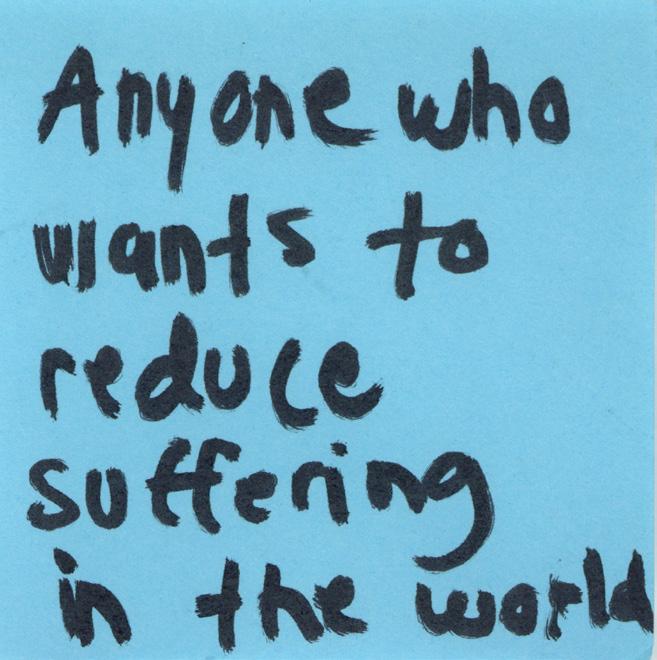 Anyone who
wants to
reduce
suffering
in the world